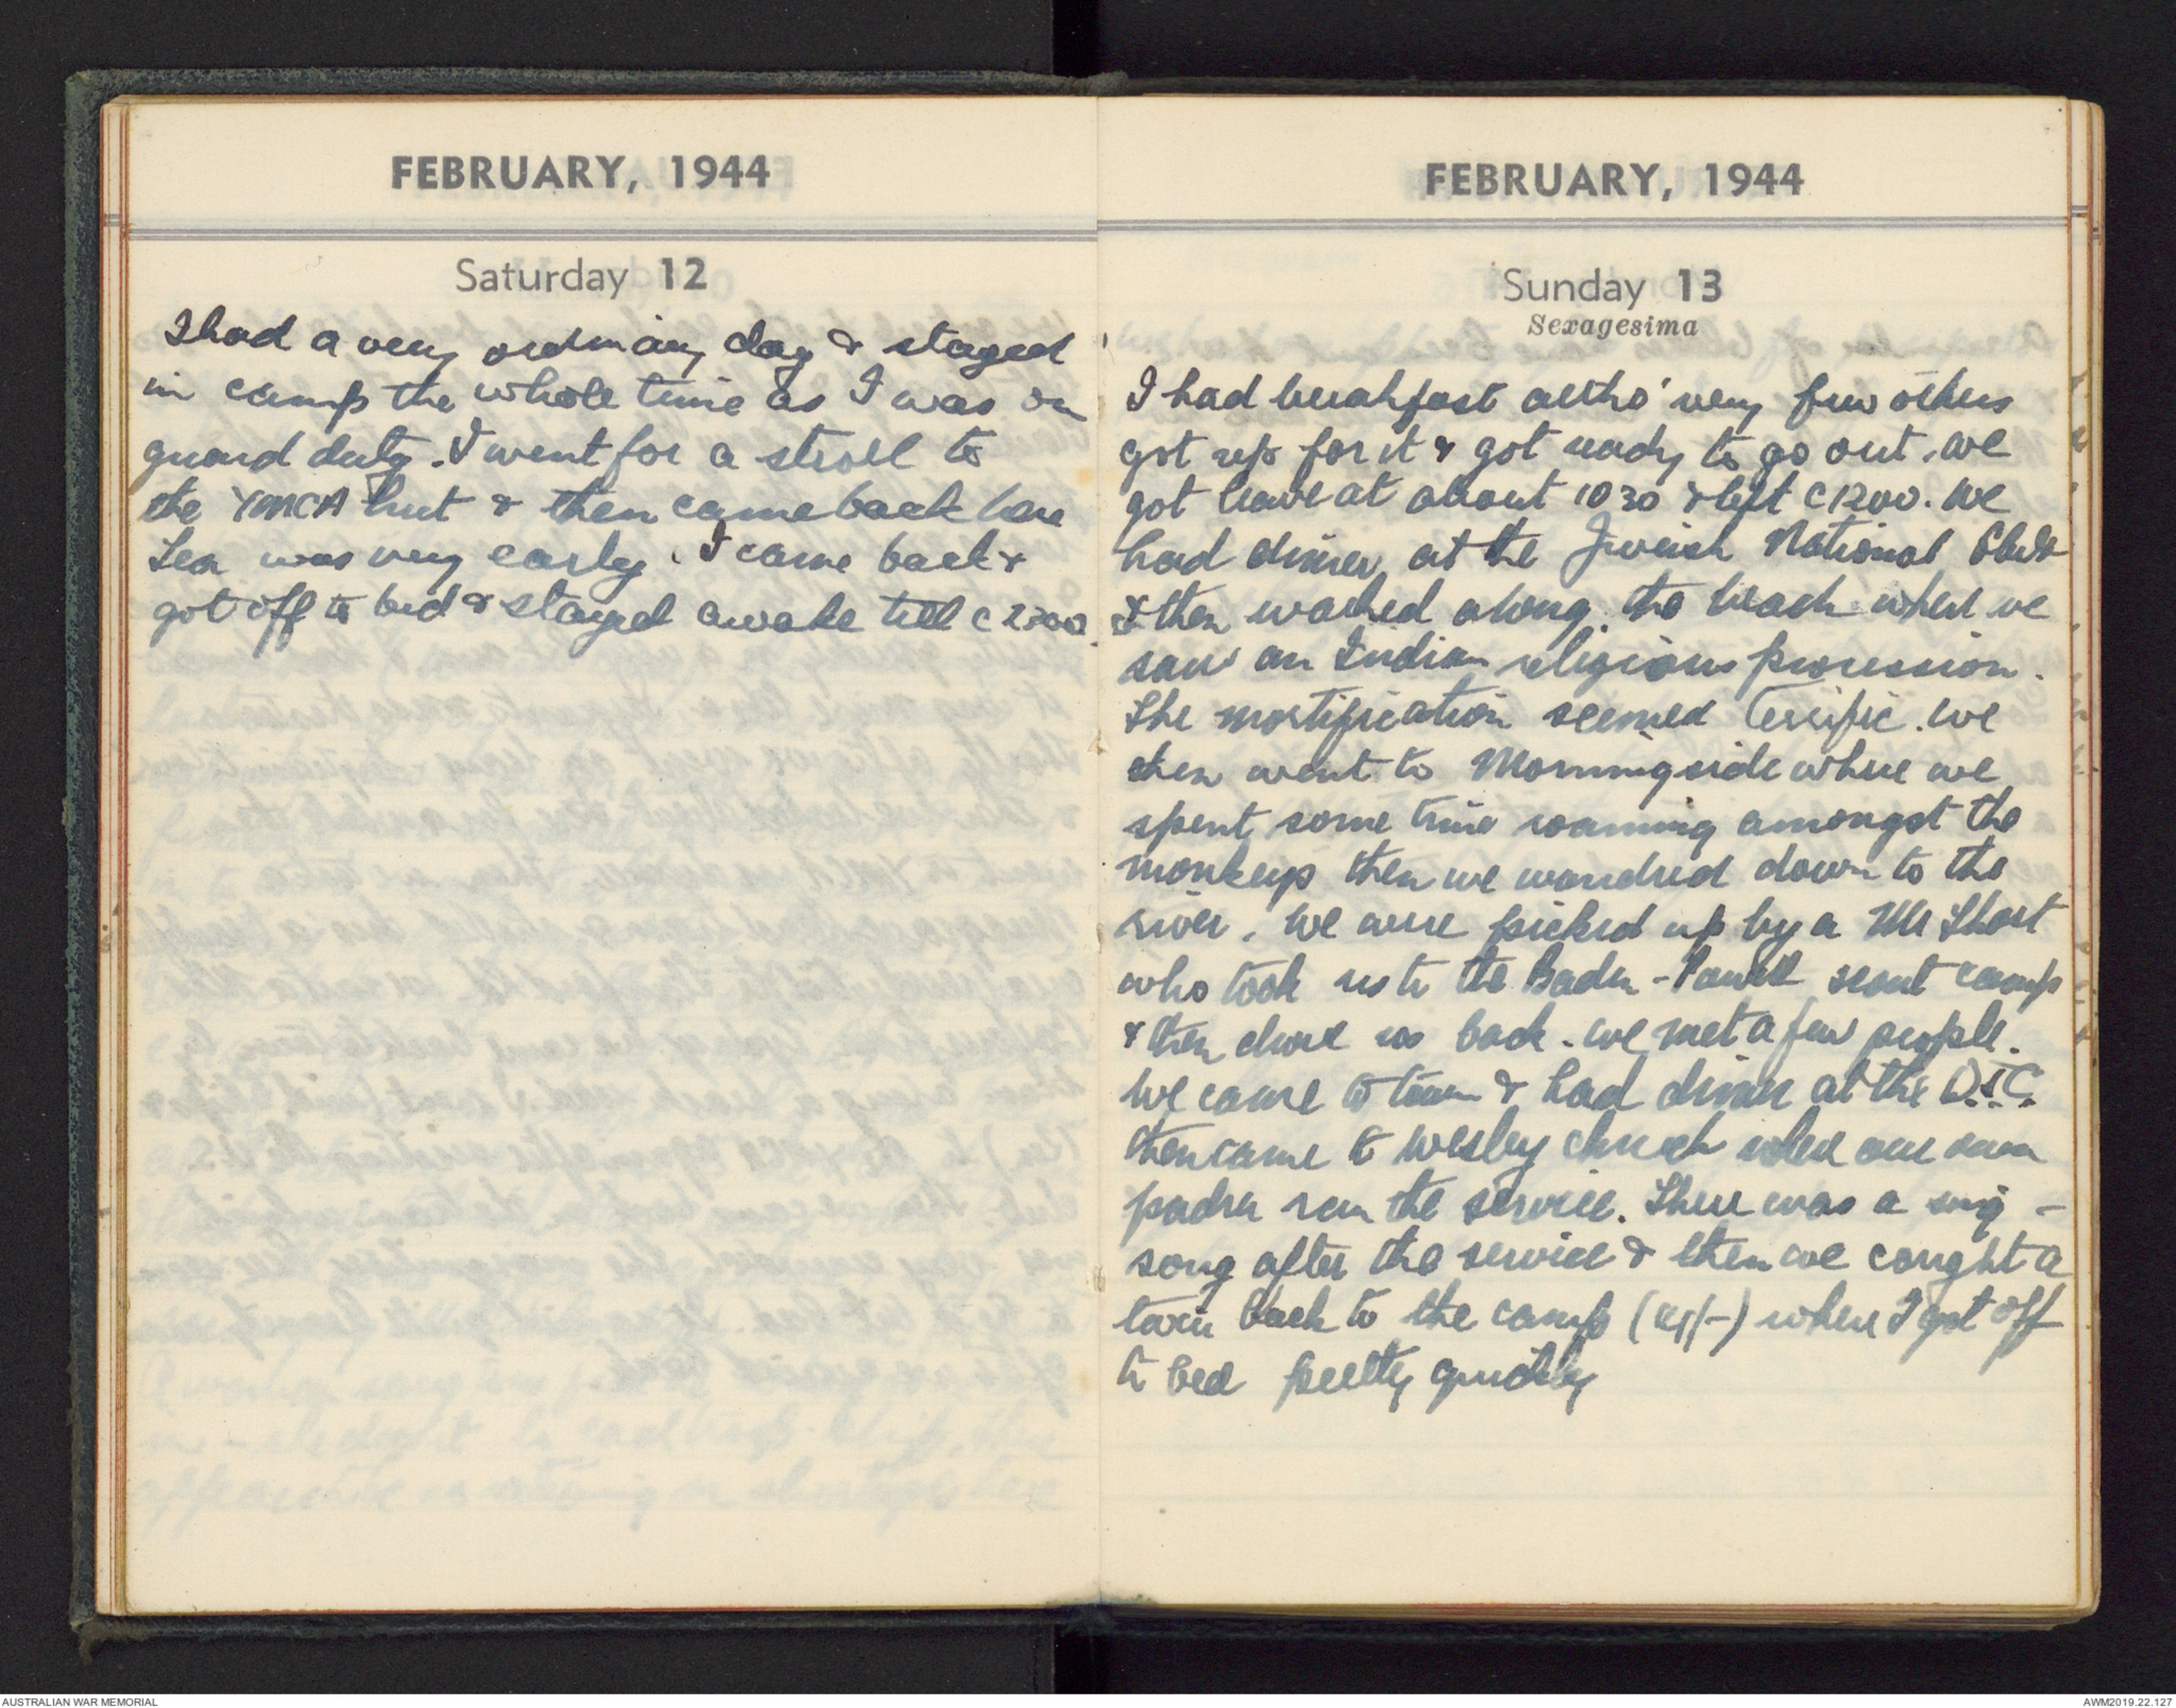 FEBRUARY, 1944
Saturday 12
I had a very ordinary day & stayed
in camp the whole time as I was on
guard duty. I went for a stroll to
the YMCA hut & then came back here
Tea was very early. I came back &
got off to bed & stayed awake till c 2300.
FEBRUARY, 1944
Sunday 13
Sexagesima
I had breakfast altho' very few others
got up for it & got ready to go out. We
got leave at about 1030 & left c 1200. We
had dinner at the Jewish National Club
& then walked along the beach where we
saw an Indian religious procession.
The mortification seemed terrific. We
then went to Morningside where we
spent some time roaming amongst the
monkeys then we wandred down to the
river. We were picked up by a Mr Short
who took us to the Baden-Powell scout camp
& then drove us back. We met a few people.
We came to town & had dinner at the
then came to Wesley church where our own
padre ran the service. There was a sing-
song after the service & then we caught a
taxi back to the camp where I got off
to bed pretty quickly
AUSTRALIAN WAR MEMORIAL
AWM2019.22.127